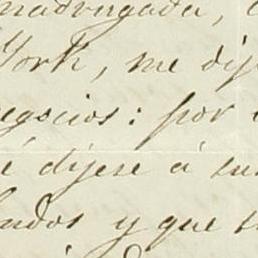 madrugada,
York, me dij
egocios: por
é dijese á su
ados y que